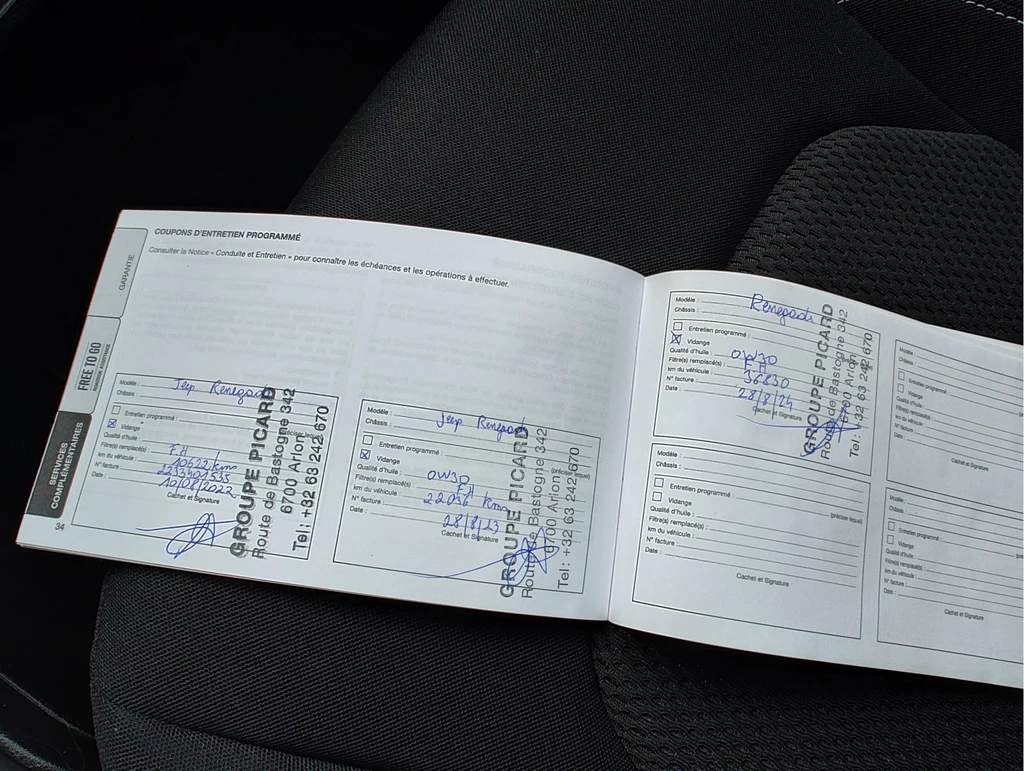 COUPONS D'ENTRETIEN PROGRAMMÉ
Consulter la Notice « Conduite et Entretien » pour connaître les échéances et les opérations à effectuer.
GARANTIE
FREE TO GO
SERVICES
COMPLÉMENTAIRES
34
Modèle : Jeep Renegade
Châssis :
Entretien programmé :
☒ Vidange
Qualité d'huile :
Filtre(s) remplacé(s) : F.H
km du véhicule : 10622 kms
N° facture :
Date : 10/08/2022
Cachet et Signature
GROUPE PICARD
Route de Bastogne 342
6700 Arlon
Tel: +32 63 242 670
Modèle : Jeep Renegade
Châssis :
Entretien programmé : (préciser lequel)
☒ Vidange
Qualité d'huile : 0W30
Filtre(s) remplacé(s) : FH
km du véhicule : kms
N° facture :
Date : 28/8/23
Cachet et Signature
GROUPE PICARD
Route de Bastogne 342
6700 Arlon
Tel: +32 63 242 670
Modèle : Renegade
Châssis :
Entretien programmé :
☒ Vidange
Qualité d'huile : 0W30
Filtre(s) remplacé(s) : FH
km du véhicule : 36830
N° facture :
Date : 28/8/24
Cachet et Signature
GROUPE PICARD
Route de Bastogne 342
6700 Arlon
Tel: +32 63 242 670
Modèle :
Châssis :
Entretien programmé : (préciser lequel)
Vidange
Qualité d'huile :
Filtre(s) remplacé(s) :
km du véhicule :
N° facture :
Date :
Cachet et Signature
Modèle :
Châssis :
Entretien programmé :
Vidange
Qualité d'huile :
Filtre(s) remplacé(s) :
km du véhicule :
N° facture :
Date :
Cachet et Signature
Modèle :
Châssis :
Entretien programmé :
Vidange
Qualité d'huile :
Filtre(s) remplacé(s) :
km du véhicule :
N° facture :
Date :
Cachet et Signature